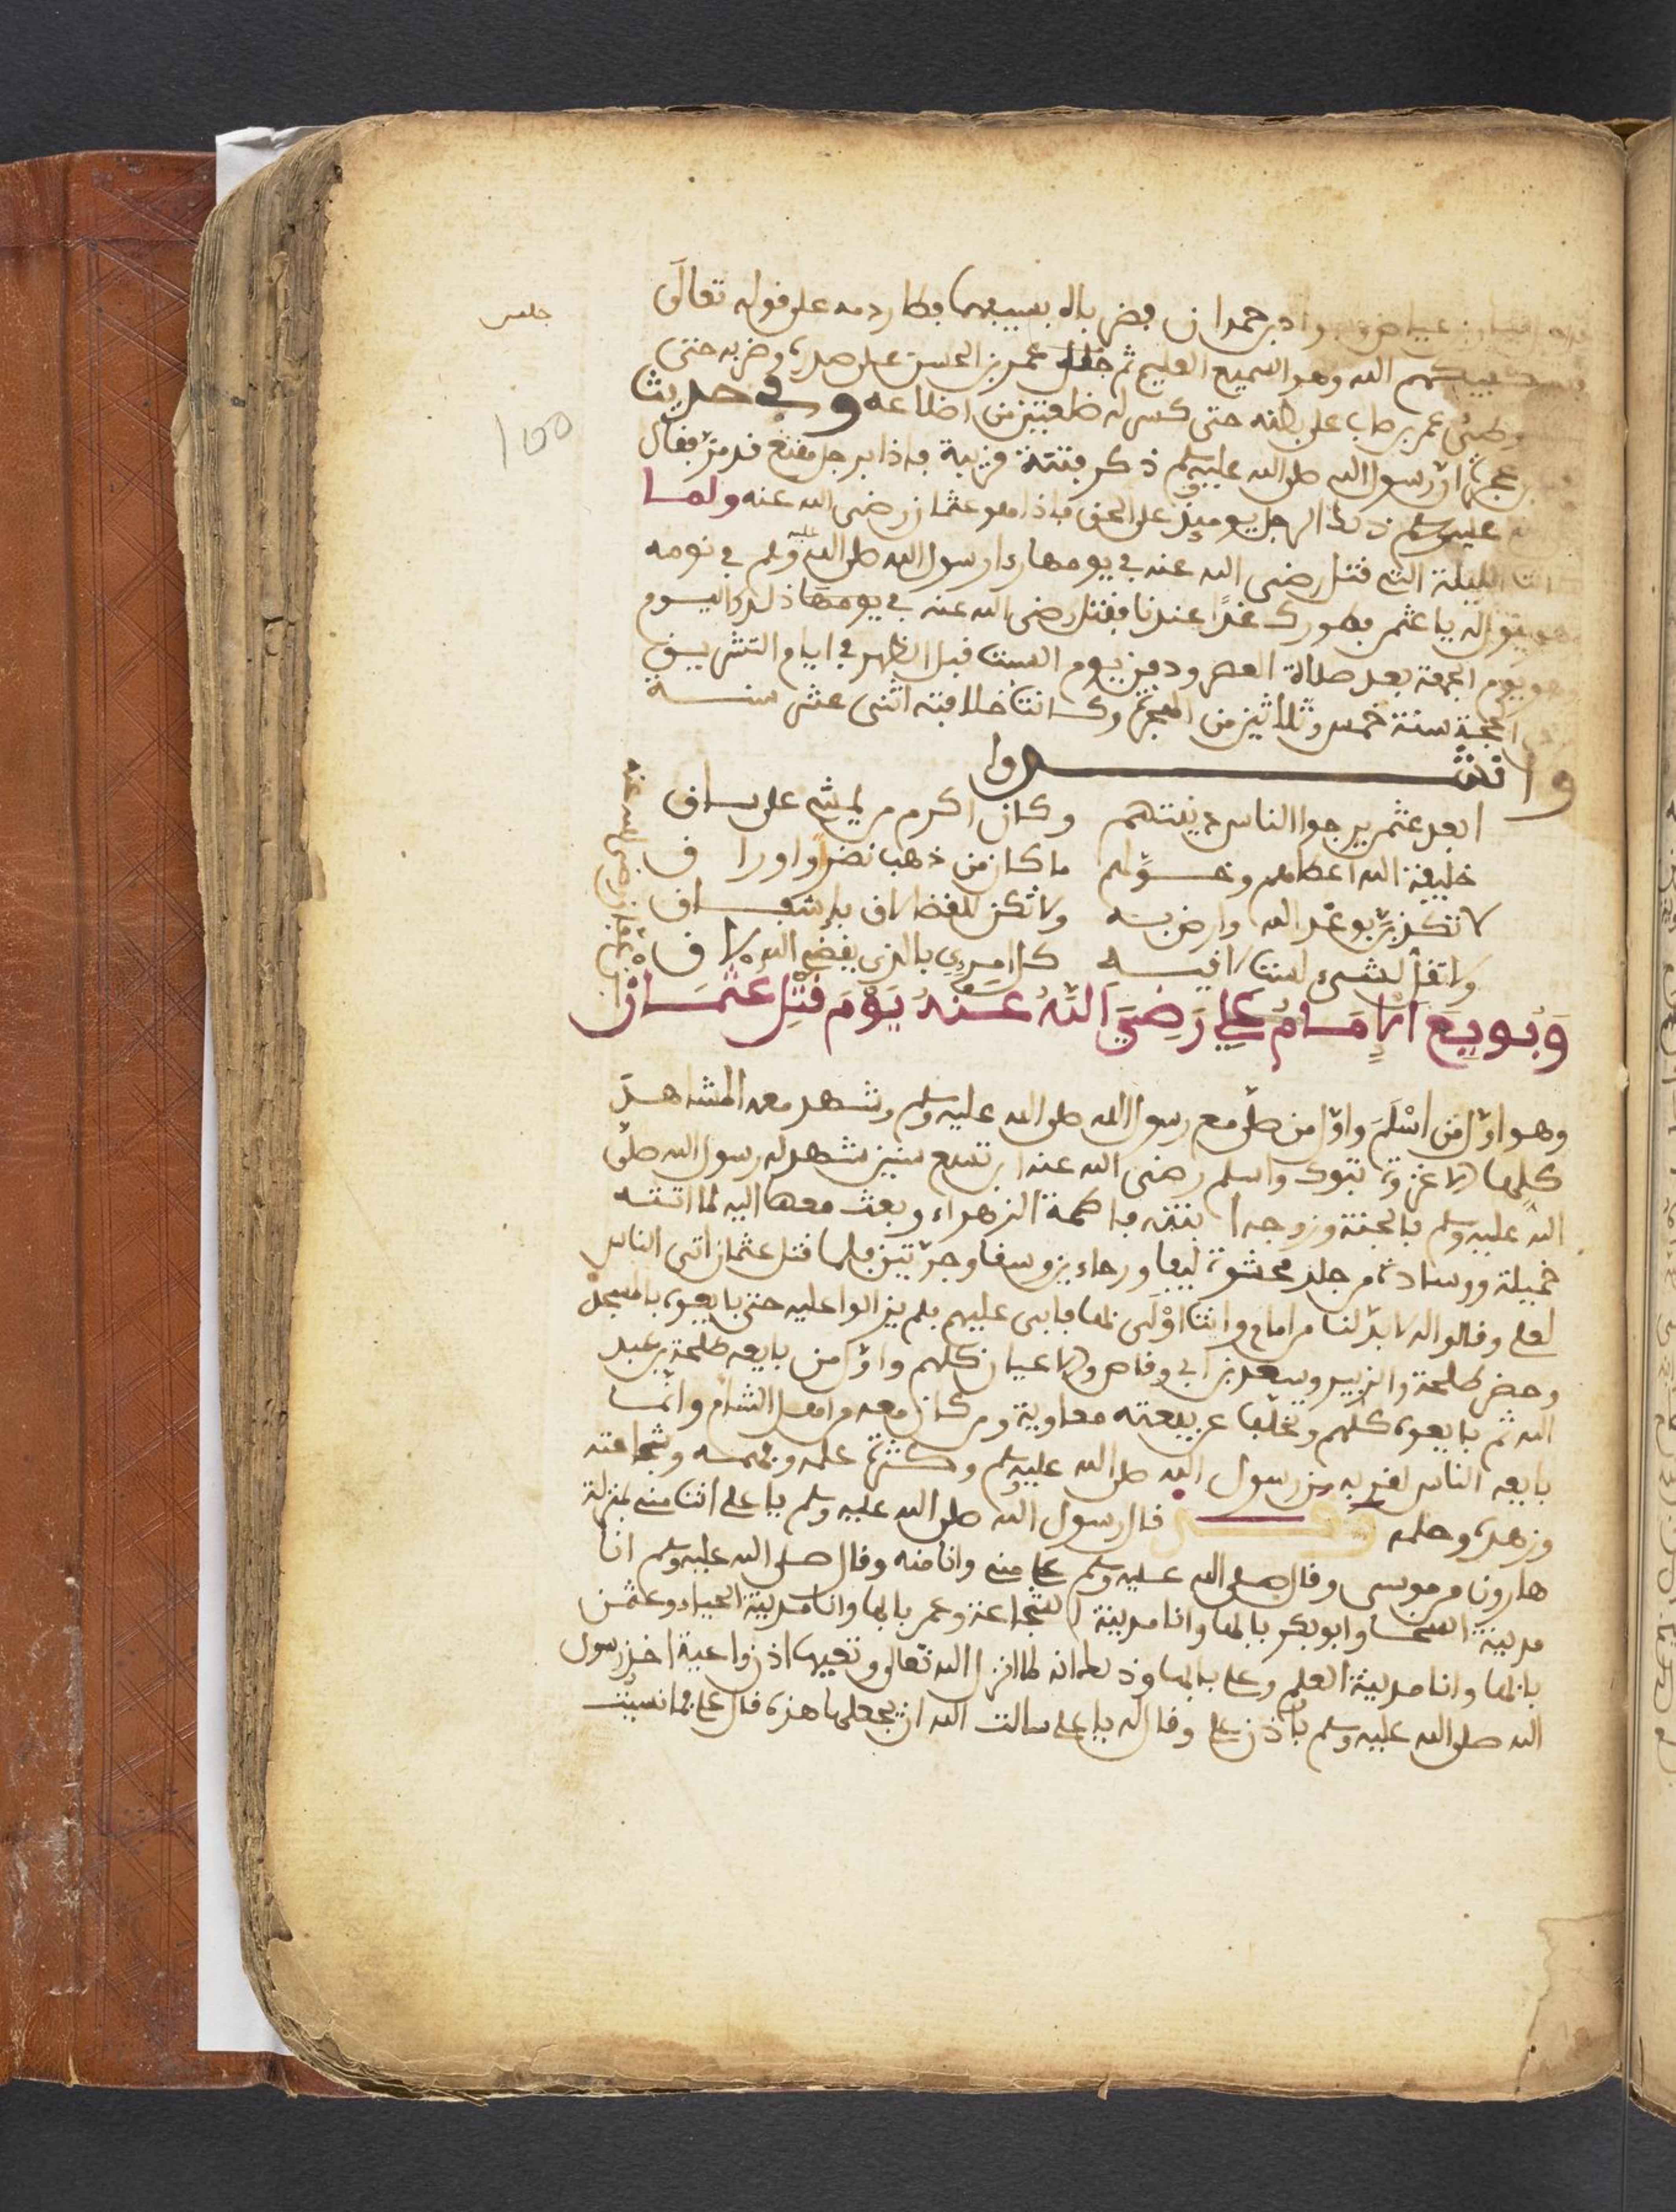 جلس
100
بن عياض وسودان بن حمدان فضرباه بسيفهما فطار دمه على قوله تعالى
فسيكفيكهم الله وهو السميع العليم ثم جلس عمر بن الحسن على صدره وضربه حتى
وطئ عمير بن ضابئ على بطنه حتى كسر له ضلعين من اضلاعه وفي حديث
عجرة ان رسول الله صلى الله عليه وسلم ذكر فتنة قريبة فاذا برجل مقنع قد مر فقال
عليه وسلم ذلك الرجل يوميذ على الحق فاذا هو عثمان رضي الله عنه ولما
كانت الليلة التي قتل رضي الله عنه في يومها رءا رسول الله صلى الله عليه وسلم في نومه
وهو يقول له يا عثمن فطورك غدا عندنا فقتل رضي الله عنه في يومها ذلك واليوم
وهو يوم الجمعة بعد صلاة العصر ودفن يوم السبت قبل الظهر في ايام التشريق
الحجة سنة خمس وثلاثين من الهجرة وكانت خلافته اثنى عشر سنة
وانشدوا
ابعد عثمن يرجوا الناس فتنتهم وكان اكرم من يمشي على ساق
خليفة الله اعطاهم وخولهم ما كان من ذهب نضرا واوراق
لا تكذبن بوعد الله وارض به ولا تكن للقضا لاق بإشفاق
ولا تقل لشيء لست لاقيه كل امرئ بالذي يقضي الله لاق
رضي الله عنه
وبويع الإمام علي رضي الله عنه يوم قتل عثمان
وهو اول من اسلم واول من صلى مع رسول الله صلى الله عليه وسلم وشهد معه المشاهد
كلها الا غزوة تبوك واسلم رضي الله عنه ابن تسع سنين شهد له رسول الله صلى
الله عليه وسلم بالجنة وزوجه ابنته فاطمة الزهراء وبعث معها اليه لما اتته
خميلة ووسادة من جلد محشوة ليفا ورحاءين وسقا وجرتين فلما قتل عثمان اتى الناس
لعلي وقالوا له لا بد لنا من امام وانت اولى بها فابى عليهم فلم يزالوا عليه حتى بايعوه بالمسجد
وحضر طلحة والزبير وسعد بن ابي وقاص والاعيان كلهم واول من بايعه طلحة بن عبيد
الله ثم بايعوه كلهم وتخلف عن بيعته معاوية ومن كان معه من اهل الشام وانما
بايعه الناس لقربه من رسول الله صلى الله عليه وسلم وكثرة علمه وفهمه وشجاعته
وزهده وحلمه قال رسول الله صلى الله عليه وسلم يا علي انت مني بمنزلة
هارون من موسى وقال صلى الله عليه وسلم علي مني وانا منه وقال صلى الله عليه وسلم انا
مدينة السخا وابو بكر بابها وانا مدينة الشجاعة وعمر بابها وانا مدينة الحياء وعثمن
بابها وانا مدينة العلم وعلي بابها وذلك انه لما انزل الله تعالى وتعيها اذن واعية اخذ رسول
الله صلى الله عليه وسلم باذن علي وقال له يا علي سالت الله ان يجعلها هذه قال علي فما نسيت